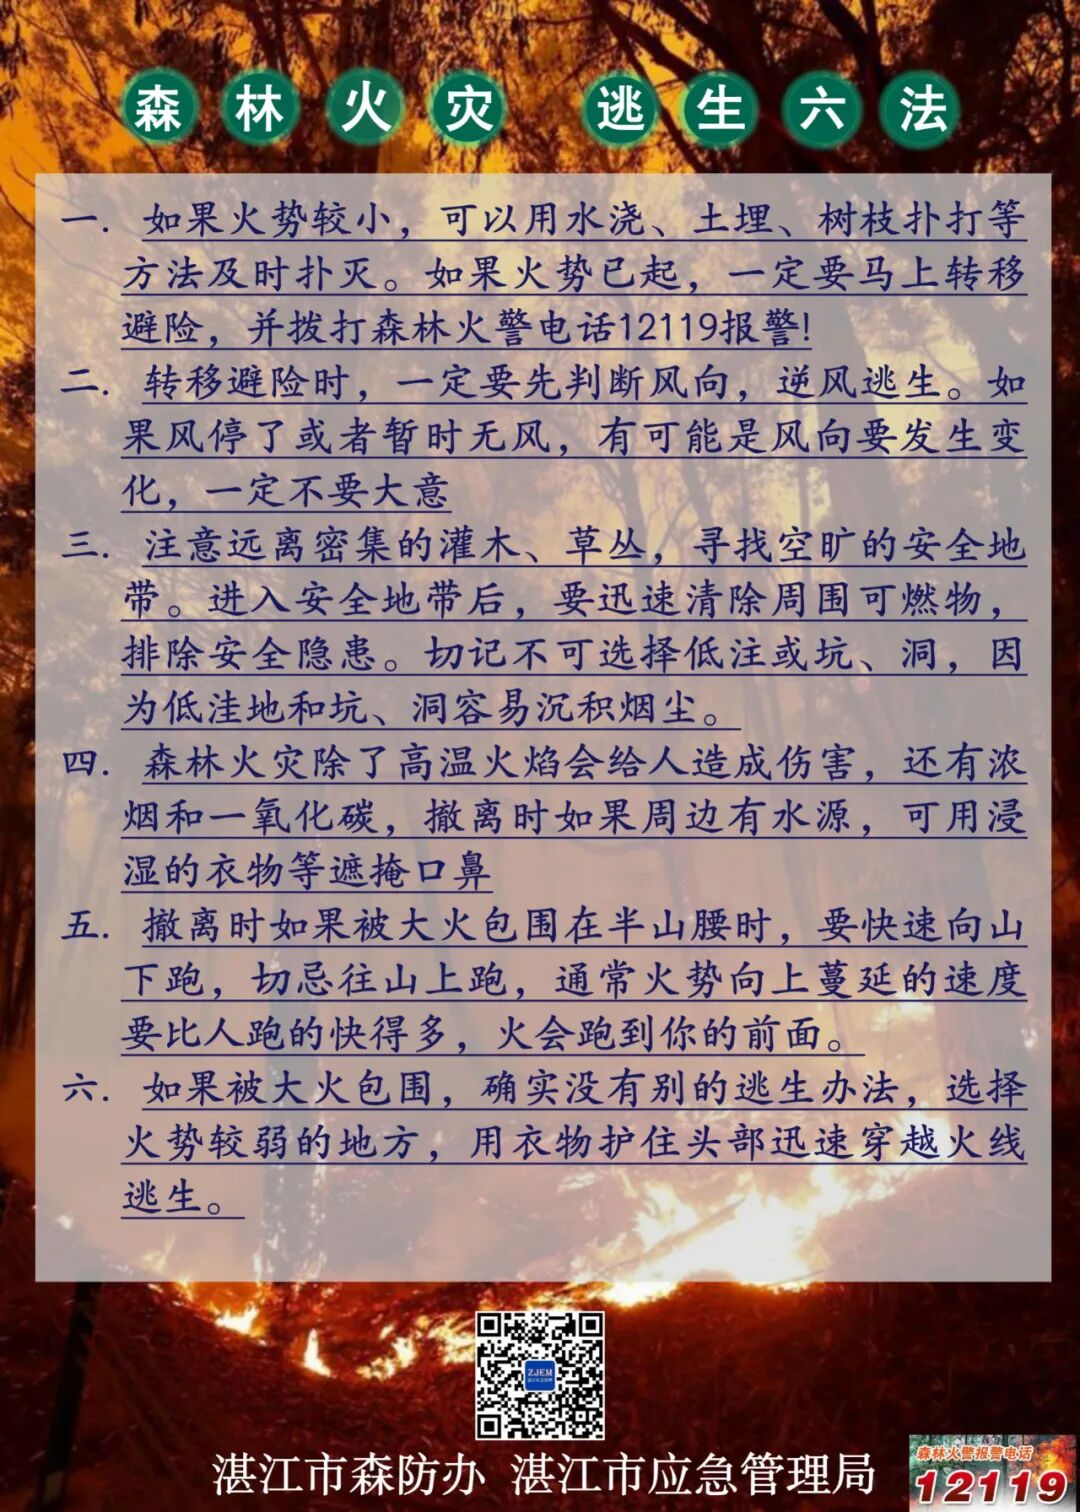 森林火灾 逃生六法
一. 如果火势较小，可以用水浇、土埋、树枝扑打等
方法及时扑灭。如果火势已起，一定要马上转移
避险，并拨打森林火警电话12119报警!
二. 转移避险时，一定要先判断风向，逆风逃生。如
果风停了或者暂时无风，有可能是风向要发生变
化，一定不要大意
三. 注意远离密集的灌木、草丛，寻找空旷的安全地
带。进入安全地带后，要迅速清除周围可燃物，
排除安全隐患。切记不可选择低注或坑、洞，因
为低洼地和坑、洞容易沉积烟尘。
四. 森林火灾除了高温火焰会给人造成伤害，还有浓
烟和一氧化碳，撤离时如果周边有水源，可用浸
湿的衣物等遮掩口鼻
五. 撤离时如果被大火包围在半山腰时，要快速向山
下跑，切忌往山上跑，通常火势向上蔓延的速度
要比人跑的快得多，火会跑到你的前面。
六. 如果被大火包围，确实没有别的逃生办法，选择
火势较弱的地方，用衣物护住头部迅速穿越火线
逃生。
ZJEM
湛江市森防办 湛江市应急管理局
森林火警报警电话
12119